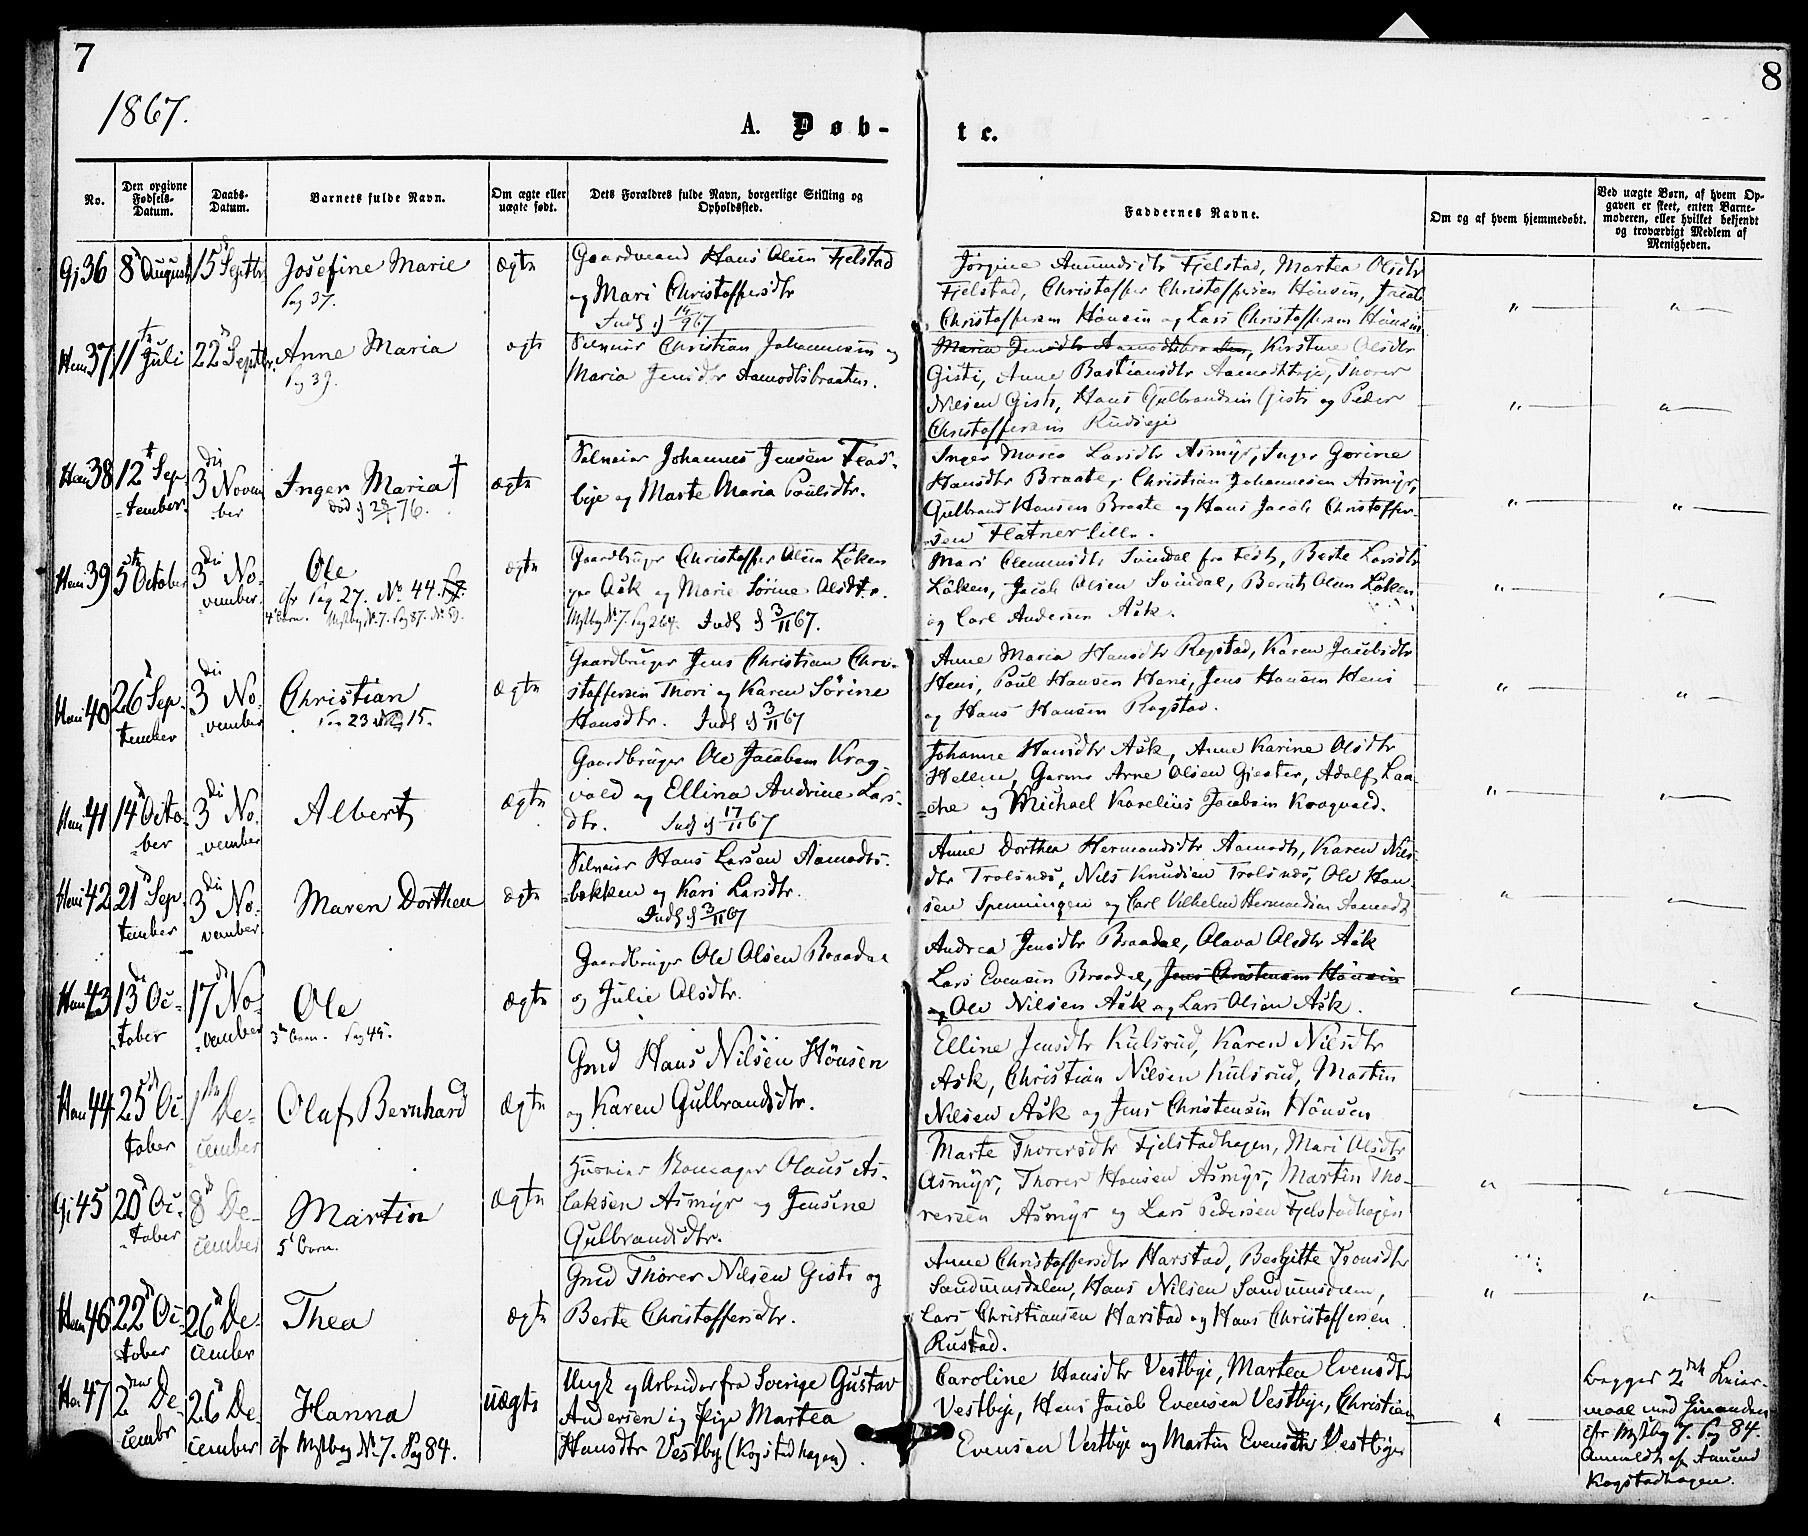 7
8
1867.
A. Døb-
te.
No.
Den opgivne Fødsels-Datum.
Daabs-Datum.
Barnets fulde Navn.
Om ægte eller uægte født.
Dets Forældres fulde Navn, borgerlige Stilling og Opholdssted.
Faddernes Navne.
Om og af hvem hjemmedøbt.
Ved uægte Børn, af hvem Op-
gaven er skeet, enten Barne-
moderen, eller hvilket bekjendt
og troværdigt Medlem af
Menigheden.
Gj 36
8de August
15de Septbr
Josefine Marie
Pag 37.
Ægte
Gaardmand Hans Olsen Fjelstad
og Mari Christoffersdtr
Jørgine Amundsdtr Fjelstad, Martea Olsdtr
Fjelstad, Christoffer Christoffersen Hönsen, Jacob
Christoffersen Hönsen og Lars Christoffersen Hönsen
Heni 37
11te Juli
22de Septbr.
Anne Maria
Pag 39.
ægte
Selveier Christian Johannesen og
Maria Jensdtr Aamodtsbraaten.
Maria Jensdtr Aamodtsbraaten, Kirstine Olsdtr
Gisti, Anne Bastiansdtr Aamodteje, Thorer
Nilsen Gisti, Hans Gulbrandsen Gisti og Peder
Christoffersen Rudseje
Heni 38
12te Sep-
tember
3die Novem
ber
Inger Maria †
ægte
Selveier Johannes Jensen
og Marte Maria Poulsdtr.
Inger Maria Larsdtr Asmyr, Inger Gorine
Hansdtr Braate, Christian Johannesen Asmyr,
Gulbrand Hansen Braate og Hans Jacob Christoffer-
sen Flatner lille.
Heni 39
5te October
3die No-
vember
Ole
cfr Pag 27. No 44.
4de Barn. No 7. Pag 87.
ægte
Gaardbruger Christoffer Olsen Löken
Ask og Marie Sörine Olsdtr.
No 7. Pag 264. Indl d 3/11 67.
Mari Clemmetsdtr Svindal fra Fedt, Berte Larsdtr
Löken, Jacob Olsen Svindal, Bernt Olsen Löken
og Carl Andersen Ask.
Heni 40
26de Sep-
tember
3die No-
vember
Christian
Pag 23 15.
Ægte
Gaardbruger Jens Christian Chri-
stoffersen Thori og Karen Sörine
Hansdtr. Indl d 3/11 67
Anne Maria Hansdtr Rogstad, Karen Jacobsdtr
Heni, Poul Hansen Heni, Jens Hansen Heni
og Hans Hansen Rogstad.
Heni 41
14de Octo-
ber
3die No-
vember
Albert
Ægte
Gaardbruger Ole Jacobsen Krog-
vold og Ellina Andrine Lars-
dtr. Indl d 17/11 67
Johanne Hansdtr Ask, Anne Karine Olsdtr
Arne Olsen Gjester, Adolf
og Michael Karelius Jacobsen Krogvold.
Heni 42
21de Sep-
tember
3die No-
vember
Maren Dorthea
ægte
Selveier Hans Larsen Aamodts-
bakken og Kari Larsdtr.
Indl d 3/11 67
Anne Dorthea Hermandsdtr Aamodt, Karen Nils-
dtr Trolsnæs, Nils Knudsen Trolsnæs, Ole Han-
sen Spenningen og Carl Vilhelm Hermandsen Aamodt
Heni 43
13de Oc-
tober
17de No-
vember
Ole
3de Barn. Pag 45.
Ægte
Gaardbruger Ole Olsen Braadal
og Julie Olsdtr.
Andrea Jensdtr Braadal, Olava Olsdtr Ask
Lars Evensen Braadal, Jens Christensen Hönsen
og Ole Nilsen Ask og Lars Olsen Ask.
Heni 44
25de Oc-
tober
1ste De-
cember
Olaf Bernhard
Ægte
Gmd Hans Nilsen Hönsen
og Karen Gulbrandsdtr.
Elline Jensdtr Kulsrud, Karen Nilsdtr
Ask, Christian Nilsen Kulsrud, Martin
Nilsen Ask og Jens Christensen Hönsen
Gj 45
20de Oc-
tober
8de De-
cember
Martin
5te Barn.
Ægte
Olaus As-
laksen Asmyr og Jensine
Gulbrandsdtr.
Marte Thorersdtr Fjelstadhagen, Mari Olsdtr
Asmyr, Thorer Hansen Asmyr, Martin Tho-
rersen Asmyr og Lars Pedersen Fjelstadhagen
Heni 46
22de Oc-
tober
26de De-
cember
Thea
ægte
Gmd Thorer Nilsen Gisti og
Berte Christoffersdtr.
Anne Christoffersdtr Harstad, Bergitte Tronsdtr
Sandumsdalen, Hans Nilsen
Lars Christiansen Harstad og Hans Christoffersen
Rustad.
47
2den De-
cembr
26de De-
cember
Hanna
cfr No 7. Pag 84.
uægte
Ungk og Arbeider fra Sverige Gustav
Andersen ig Pige Martea
Hansdtr Vestby (Kogstadhagen).
Caroline Hansdtr Vestbye, Martea Evensdtr
Vestbye, Hans Jacob Evensen Vestbye, Christian
Evensen Vestbye og Martin Vestbye
Begges 2det Leier-
maal med hinanden
cfr 7. Pag 84.
Anmeldt af Amund
Kogstadhagen.